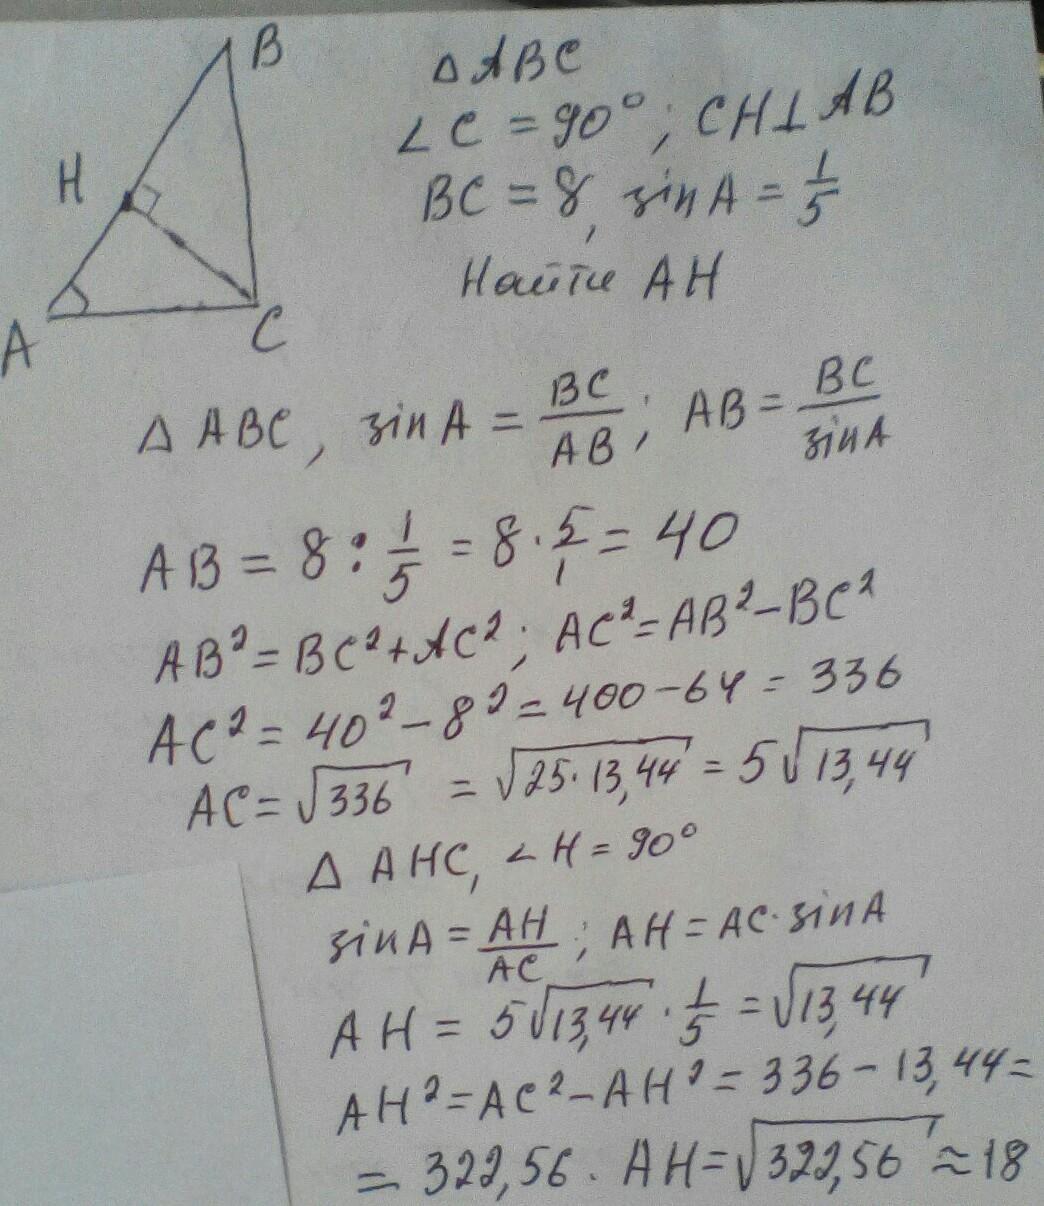 B
H
A
C
△ABC
∠C = 90°; CH⊥AB
BC = 8, sinA = 1/5
Найти AH
△ ABC, sinA = BC/AB; AB = BC/sinA
AB = 8 : 1/5 = 8 · 5/1 = 40
AB² = BC² + AC²; AC² = AB² − BC²
AC² = 40² − 8² = 400 − 64 = 336
AC = √336 = √25·13,44 = 5√13,44
△ AHC, ∠H = 90°
sinA = AH/AC; AH = AC · sinA
AH = 5√13,44 · 1/5 = √13,44
AH² = AC² − AH² = 336 − 13,44 =
= 322,56. AH = √322,56 ≈ 18